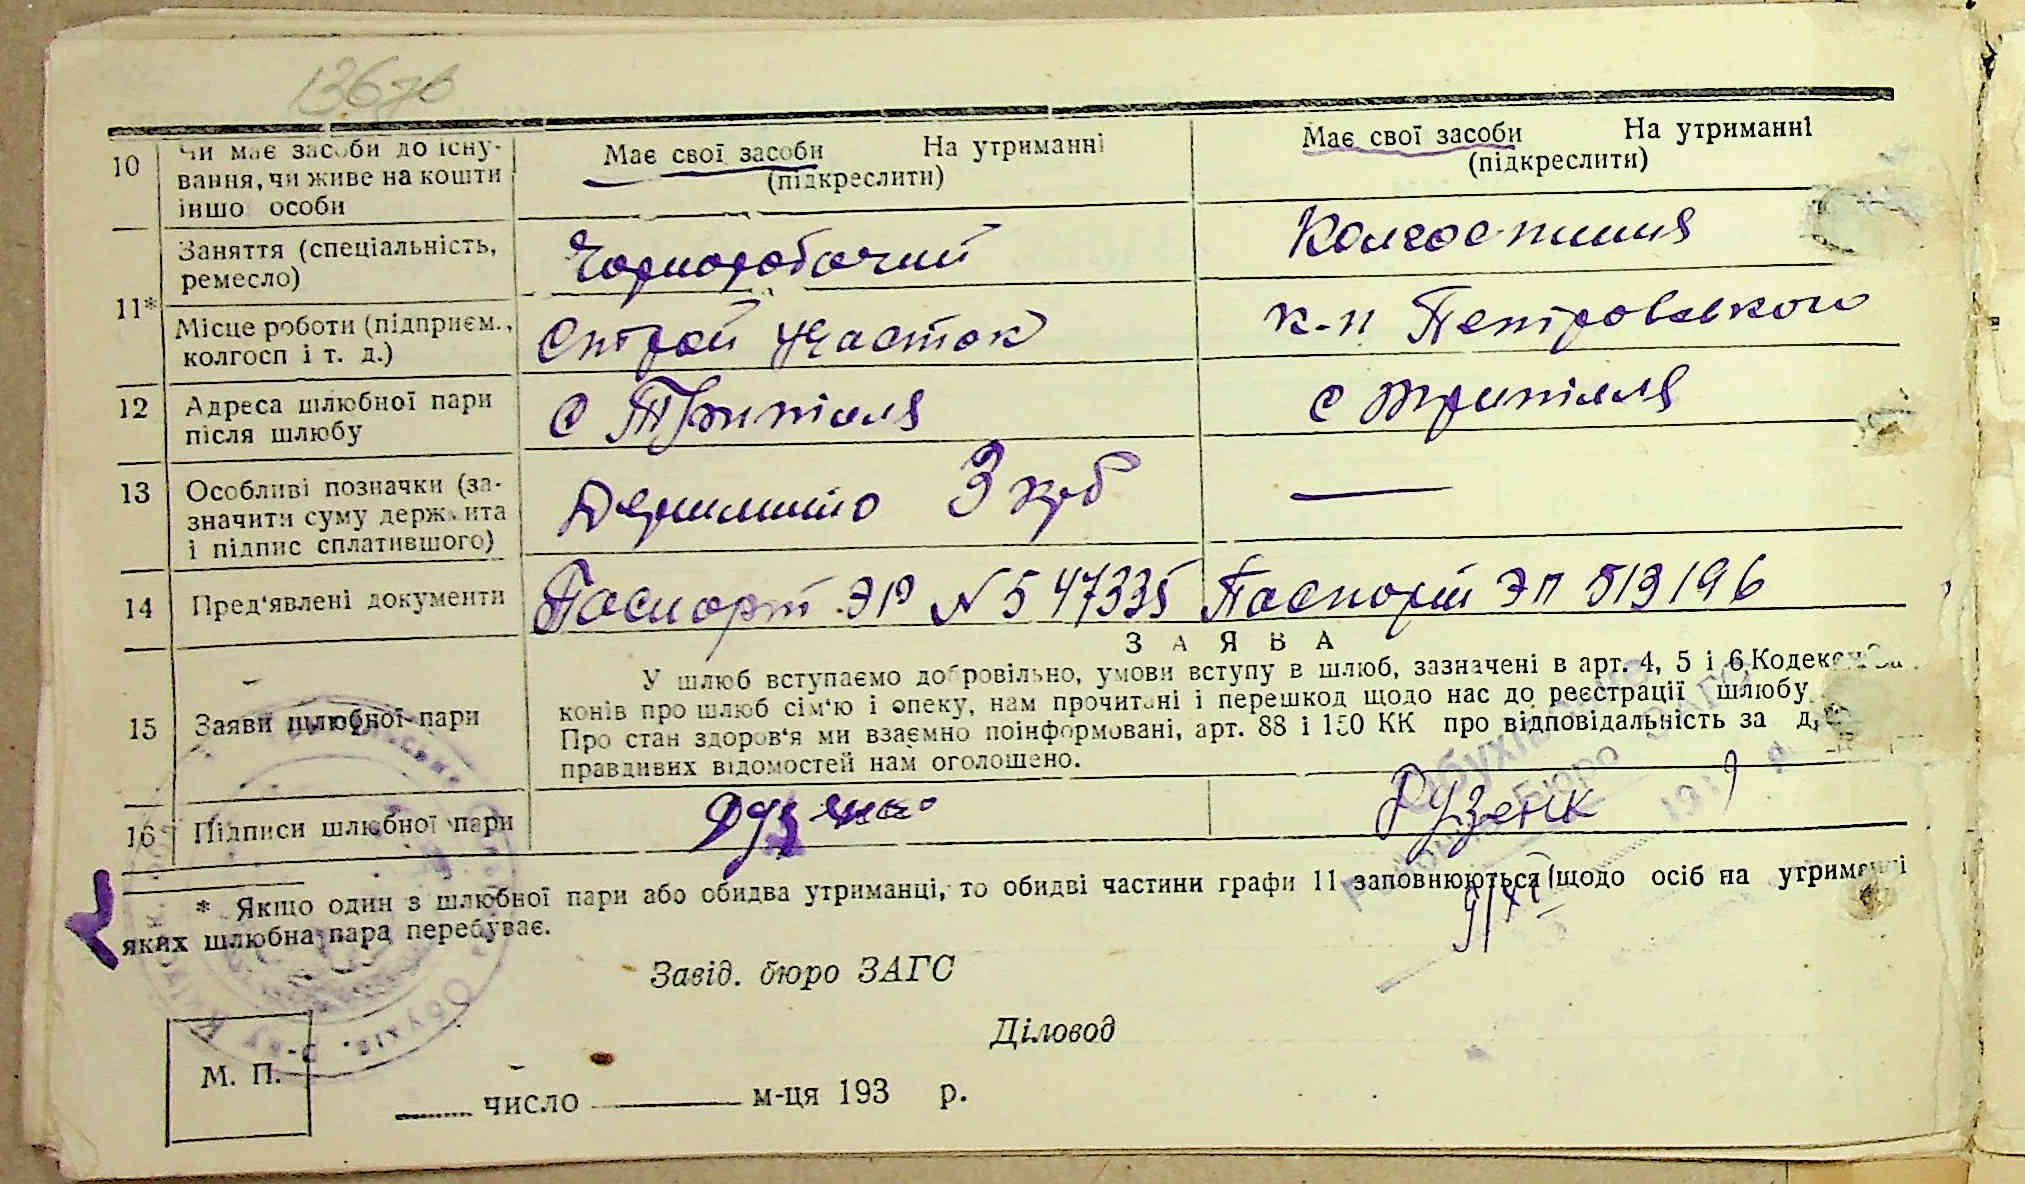 136 зв
10 Чи має засоби до існу-
вання, чи живе на кошти
іншо особи
Має свої засоби На утриманні
(підкреслити)
Має свої засоби На утриманні
(підкреслити)
11*
Заняття (спеціальність,
ремесло)
Чорноробочий
Колгоспниця
Місце роботи (підприєм.,
колгосп і т. д.)
Строй участок
к-п Петровського
12 Адреса шлюбної пари
після шлюбу
с Трипілля
с Трипілля
13 Особливі позначки (за-
значити суму держмита
і підпис сплатившого)
Держмито 3 крб
14 Пред'явлені документи
Паспорт ЭР № 547335
Паспорт ЭП 519196
ЗАЯВА
15 Заяви шлюбної пари
У шлюб вступаємо добровільно, умови вступу в шлюб, зазначені в арт. 4, 5 і 6 Кодексу За
конів про шлюб сім'ю і опеку, нам прочитані і перешкод щодо нас до реєстрації шлюбу
Про стан здоров'я ми взаємно поінформовані, арт. 88 і 150 КК про відповідальність за
правдивих відомостей нам оголошено.
16 Підписи шлюбної пари
Рузенк
* Якщо один з шлюбної пари або обидва утриманці, то обидві частини графи 11 заповнюються щодо осіб на утриманні
яких шлюбна пара перебуває.
9/XI
Завід. бюро ЗАГС
Діловод
М. П.
число м-ця 193 р.